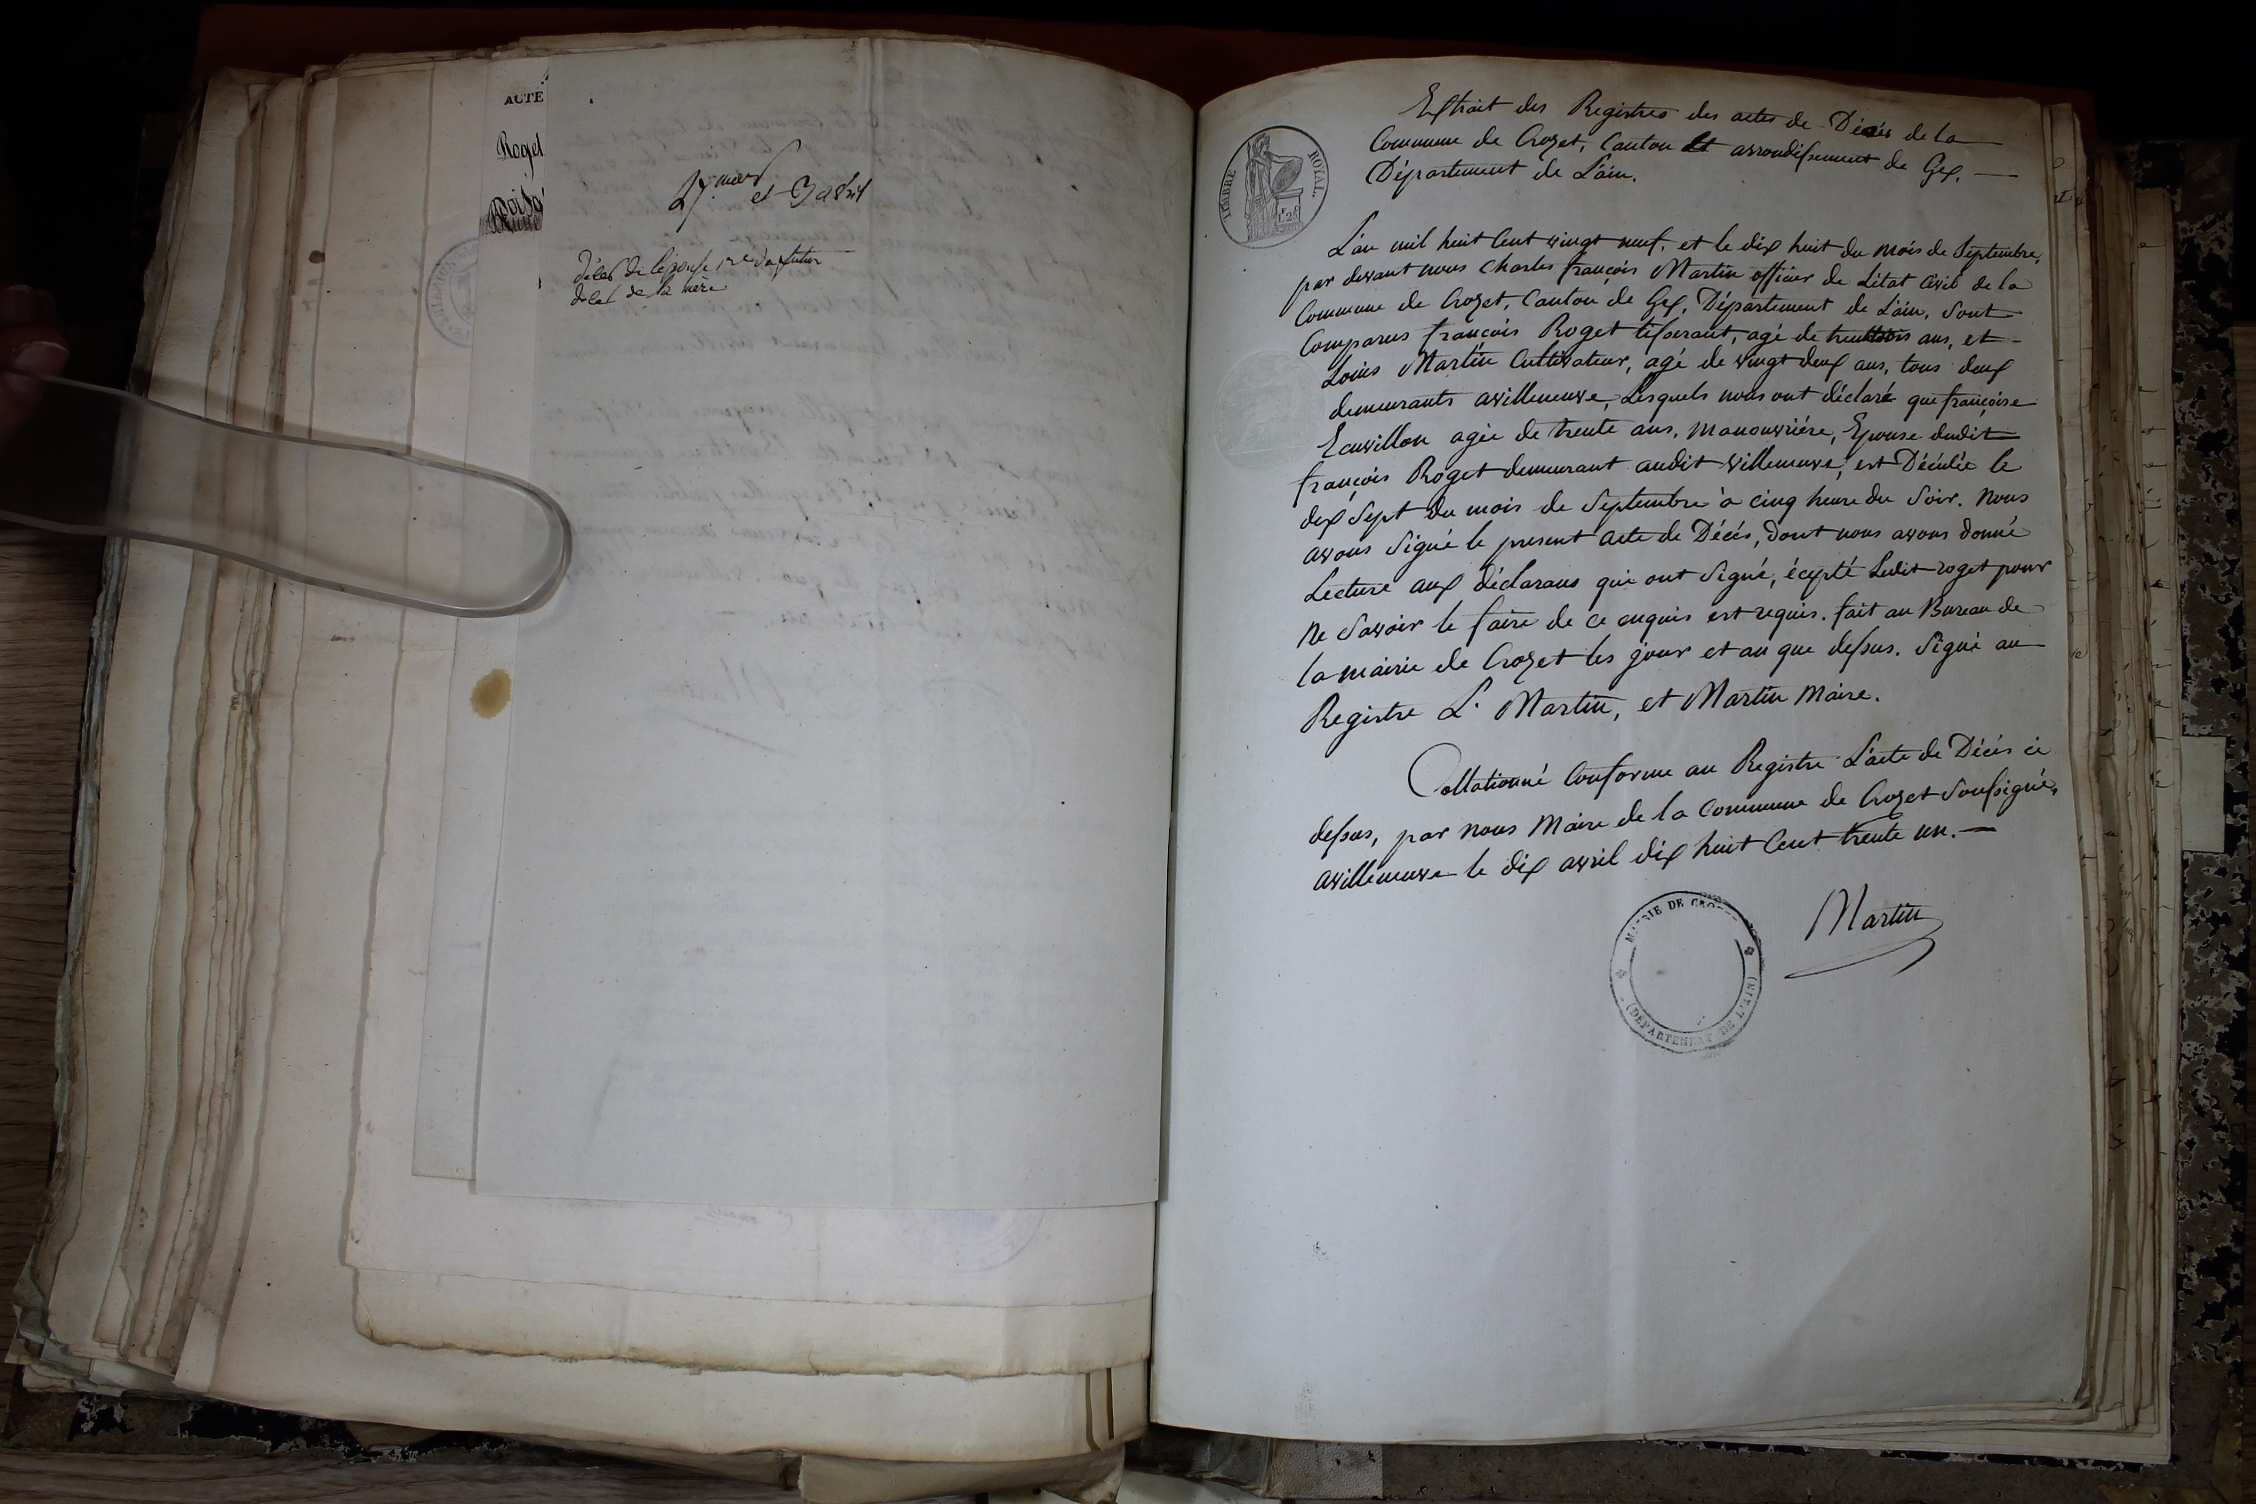 ACTE
Roget
27 mars et 3 avril
décès de l'épouse 1re du futur
de la mère
TIMBRE ROYAL
Extrait des Registres des actes de Décés de la
Commune de Crozet, Canton et arrondissement de Gex. —
Département de L'ain.
L'an mil huit Cent vingt neuf, et le dix huit du mois de Septembre,
par devant nous Charles françois Martin officier de L'état Civil de la
Commune de Crozet, Canton de Gex, Département de L'ain, Sont
Comparus françois Roget tisserant, agé de ans, et
Louis Martin Cultivateur, agé de vingt deux ans, tous deux
demeurants avilleneuve, Lesquels nous ont déclaré que françoise
Ecuvillon agée de trente ans, manouvriére, Epouse dudit
françois Roget demeurant audit villeneuve, est Décédée le
dix Sept du mois de Septembre à cinq heure du Soir. Nous
avons Signé le present acte de Décés, dont nous avons donné
Lecture aux déclarans qui ont Signé, écepté Ledit roget pour
ne Savoir le faire de ce enquis est requis. fait au Bureau de
la mairie de Crozet les jour et an que dessus. Signé au
Registre L. Martin, et Martin Maire.
Collationné Conforme au Registre L'acte de Décés ci
dessus, par nous Maire de la Commune de Crozet Soussigné,
avilleneuve le dix avril dix huit Cent trente un. —
Martin
MAIRIE DE CROZET
(DEPARTEMENT DE L'AIN)